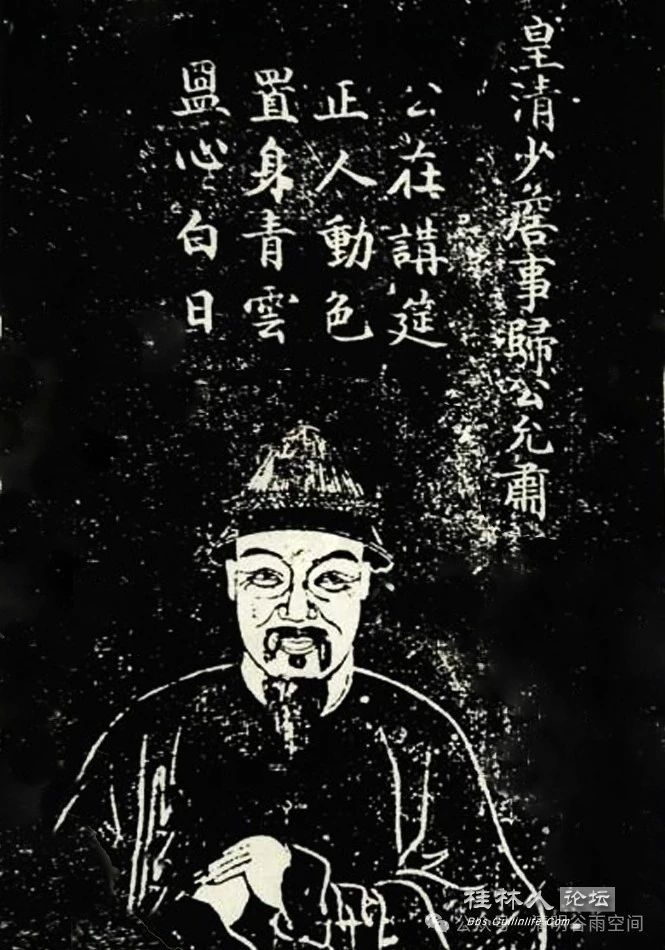 皇清少詹事歸公允肅
公在講筵
正人動色
置身青雲
盟心白日
桂林人论坛
Bbs.Guilinlife.Com
公众号 谷雨空间